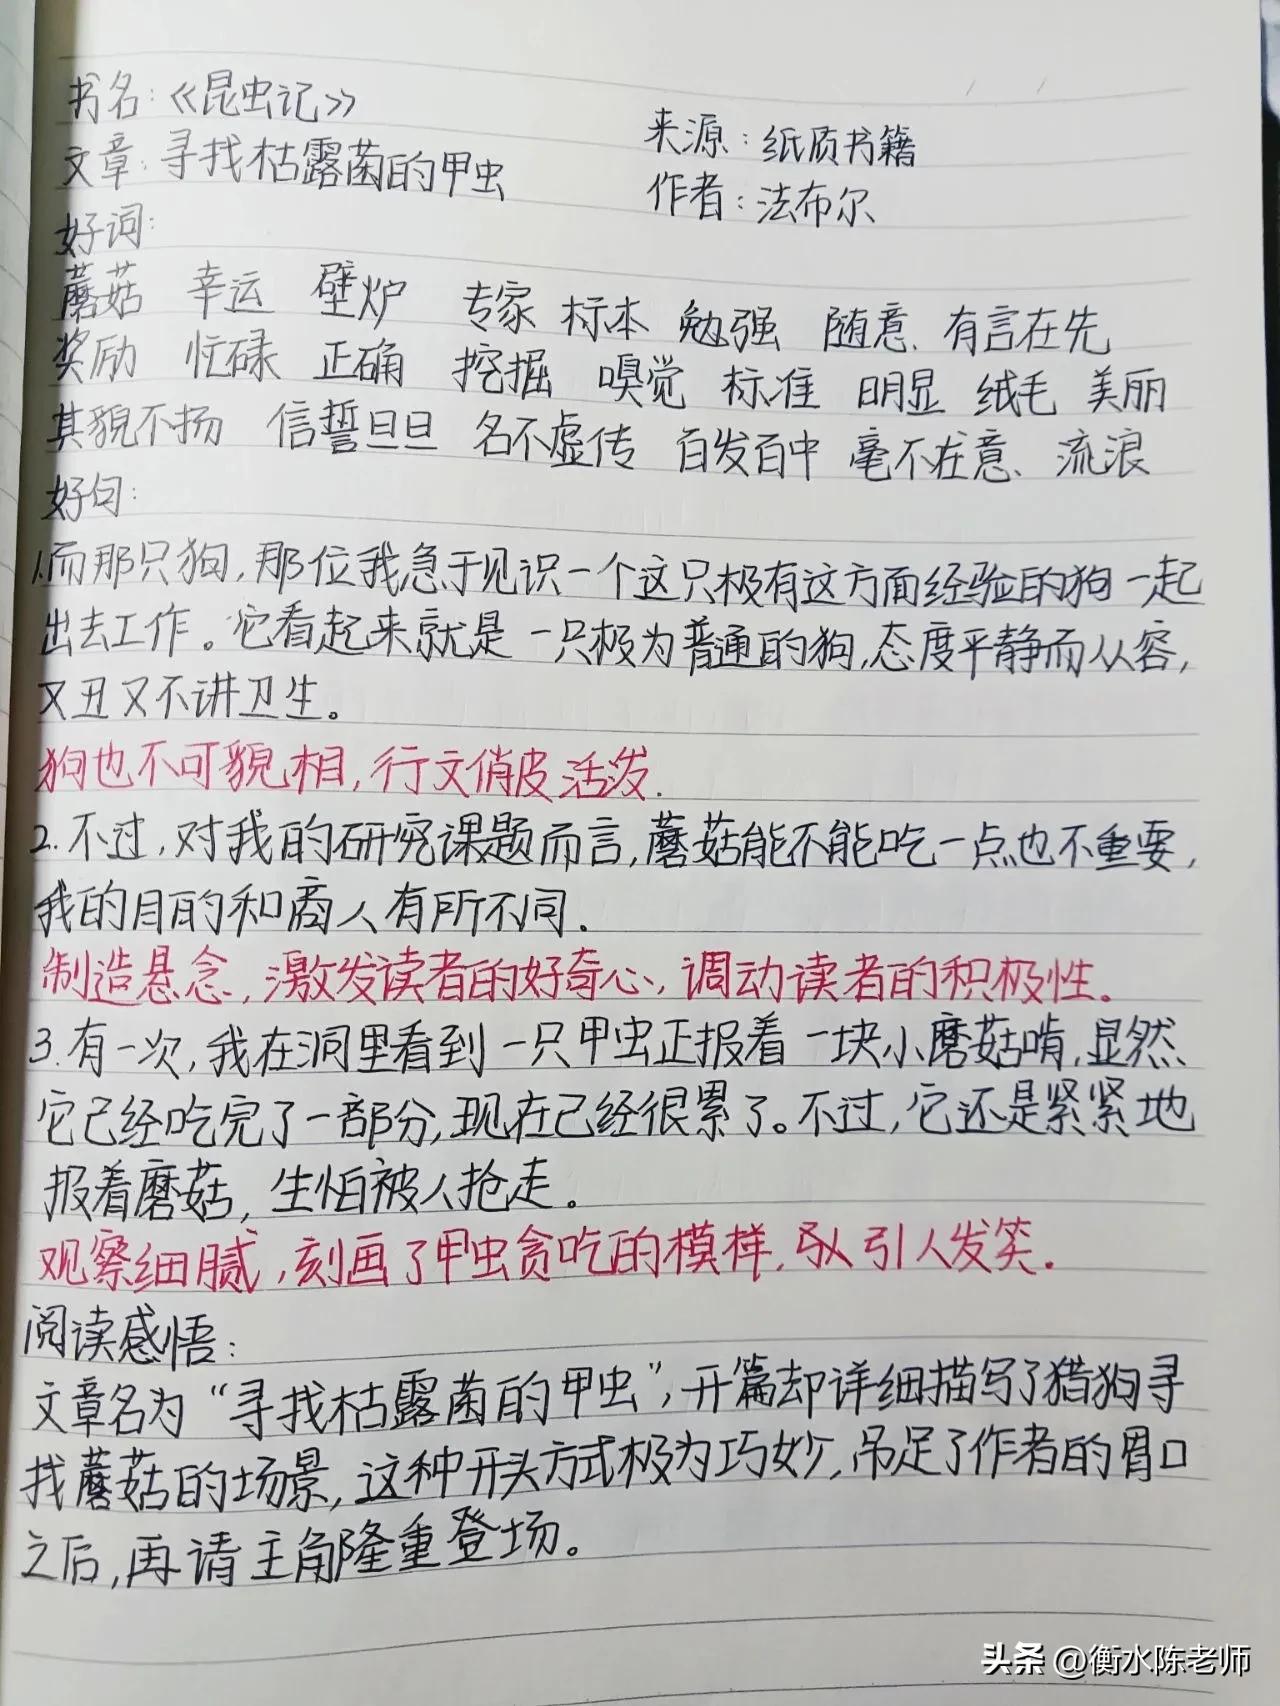 书名：《昆虫记》
来源：纸质书籍
文章：寻找枯露菌的甲虫
作者：法布尔
好词：
蘑菇 幸运 壁炉 专家 标本 勉强 随意、有言在先
奖励 忙碌 正确 挖掘 嗅觉 标准 明显 绒毛 美丽
其貌不扬 信誓旦旦 名不虚传 百发百中 毫不在意、流浪
好句：
1.而那只狗，那位我急于见识一个这只极有这方面经验的狗一起
出去工作。它看起来就是一只极为普通的狗，态度平静而从容，
又丑又不讲卫生。
狗也不可貌相，行文俏皮活泼．
2.不过，对我的研究课题而言，蘑菇能不能吃一点也不重要，
我的目的和商人有所不同．
制造悬念，激发读者的好奇心，调动读者的积极性。
3.有一次，我在洞里看到一只甲虫正报着一块小蘑菇啃，显然
它已经吃完了一部分，现在已经很累了。不过，它还是紧紧地
报着蘑菇，生怕被人抢走。
观察细腻，刻画了甲虫贪吃的模样，引人发笑．
阅读感悟：
文章名为“寻找枯露菌的甲虫”，开篇却详细描写了猎狗寻
找蘑菇的场景，这种开头方式极为巧妙，吊足了作者的胃口
之后，再请主角隆重登场。
头条 @衡水陈老师